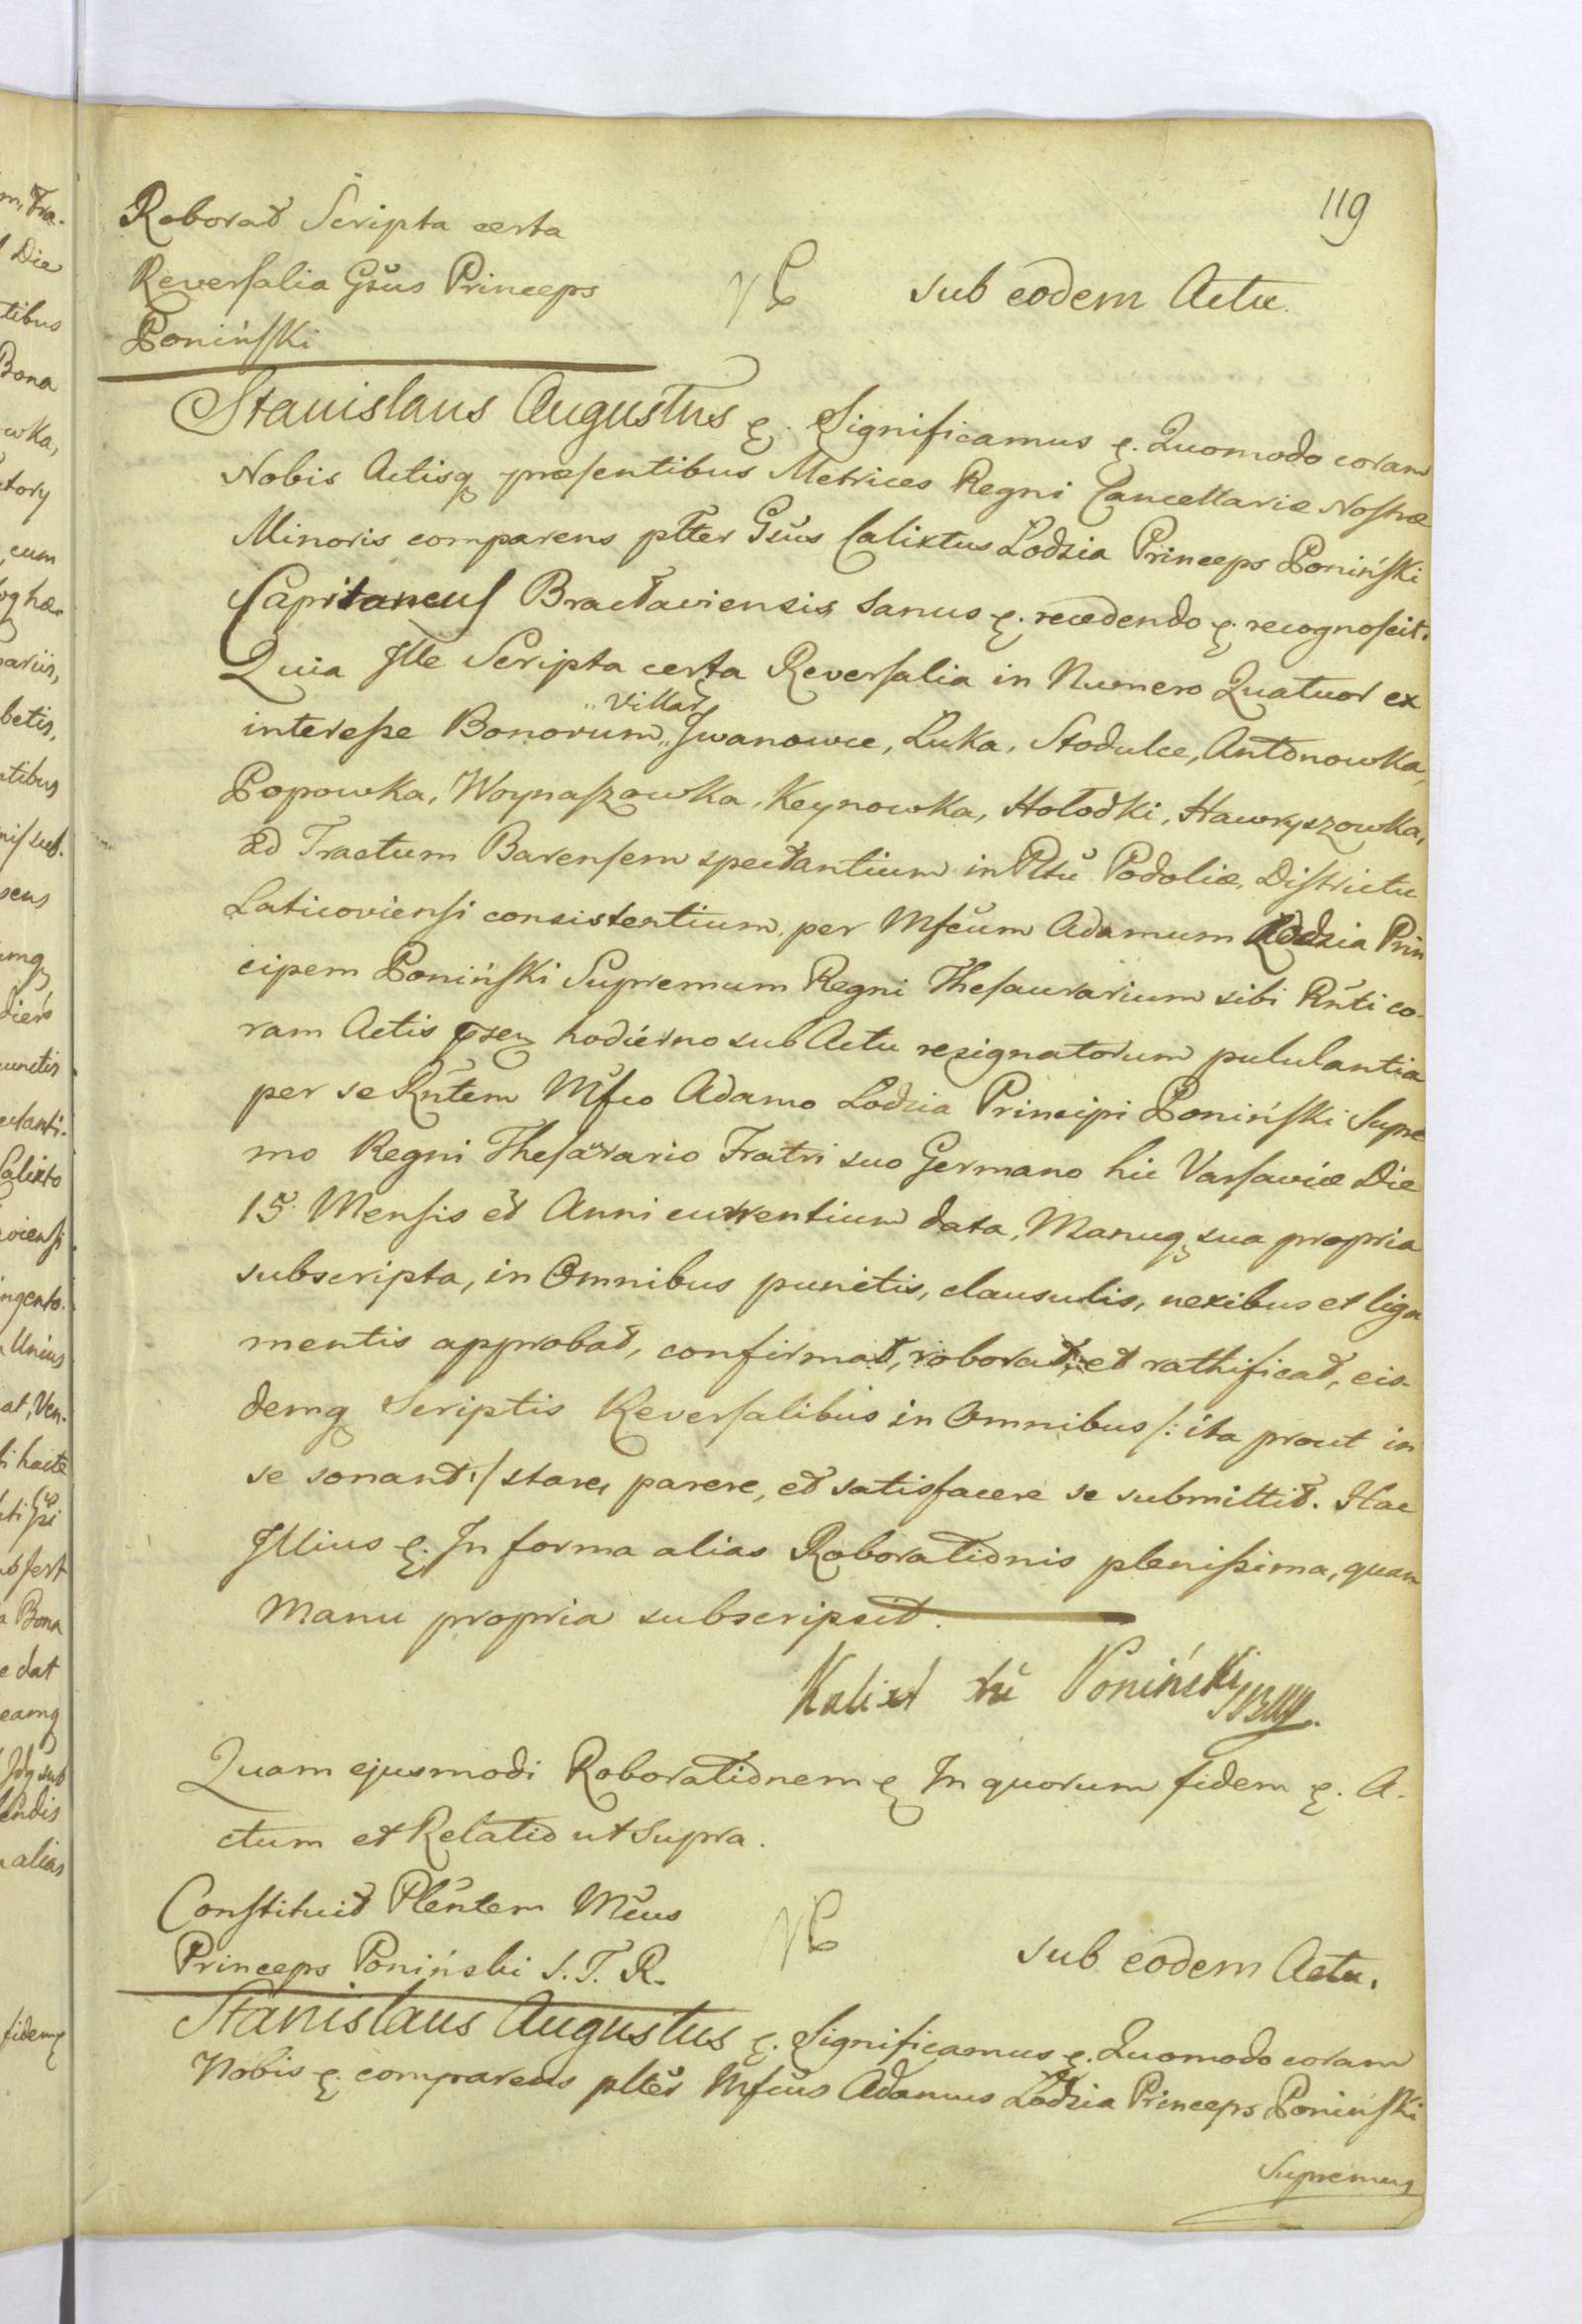 119
Roborat Scripta certa
Reversalia Gsus Princeps
Poniński
sub eodem Actu.
Stanislaus Augustus &. Significamus &. Quomodo coram
Nobis Actisq præsentibus Metrices Regni Cancellariæ Nostræ
Minoris comparens plter Gsus Calixtus Lodzia Princeps Poniński
Capitaneus Bracłaviensis sanus &. recedendo &. recognoscit.
Quia Ille Scripta certa Reversalia in Numero Quatuor ex
interesse Bonorum „Villar„ Iwanowce, Łuka, Stodulce, Antonowka,
Popowka, Woynaszowka, Keynowka, Hołodki, Hawryszowka,
ad Tractum Barensem spectantium in Pltu Podoliæ, Districtu
Laticoviensi consistentium, per Mfcum Adamum Lodzia Prin
cipem Poniński Supremum Regni Thesaurarium sibi Rnti co-
ram Actis hodierno sub Actu resignatorum pululantia
per se Rntem Mfco Adamo Lodzia Principi Poniński Supre
mo Regni Thesaurario Fratri suo Germano hic Varsaviæ Die
15 Mensis et Anni currentium data, Manuq sua propria
subscripta, in Omnibus punctis, clausulis, nexibus et liga
mentis approbat, confirmat, roborat, et rathificat, eis-
demq Scriptis Reversalibus in Omnibus /: ita prout in
se sonant :/ stare, parere, et satisfacere se submittit. Hac
Illius &. In forma alias Roborationis plenissima, quam
Manu propria subscripsit.
Kalixt Poniński
Quam ejusmodi Roborationem & In quorum fidem &. A-
ctum et Relatio ut supra.
Constituit Plentem Mcus
Princeps Poniński S. T. R.
sub eodem Actu.
Stanislaus Augustus &. Significamus &. Quomodo coram
Nobis &. comparens plter Mfcus Adamus Lodzia Princeps Poniński
Supremus